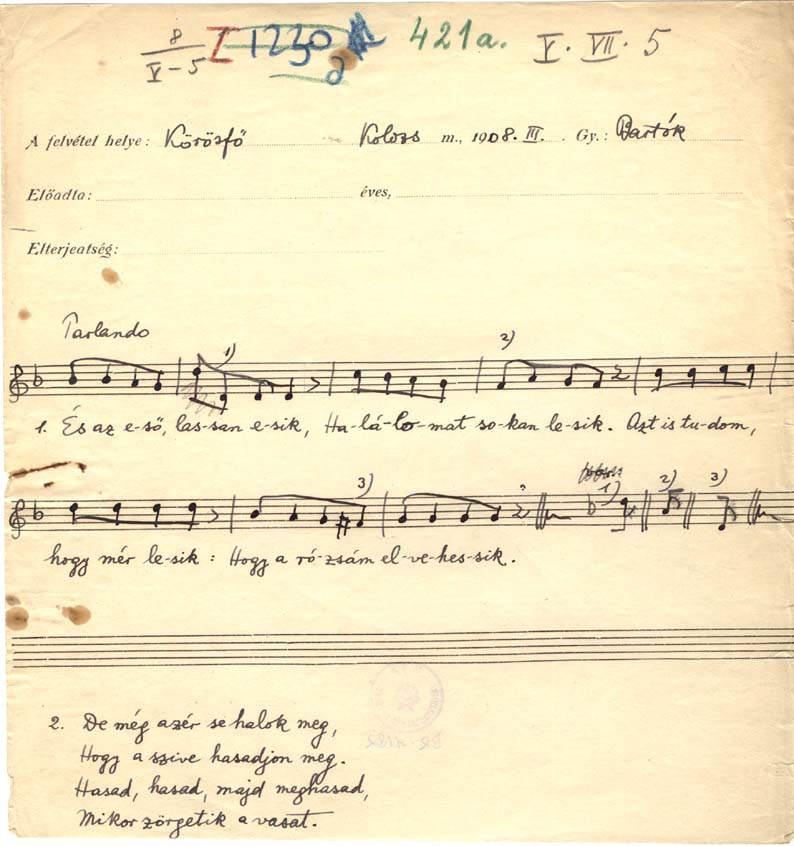 8
V-5 I 1230 421a. V. VII. 5
A felvétel helye: Körösfő Kolozs m., 1908. III. Gy.: Bartók
Előadta: éves,
Elterjeatség:
Parlando
1) 2)
1. És az e-ső, las-san e-sik, Ha-lá-lo-mat so-kan le-sik. Azt is tu-dom,
3) 1) 2) 3)
hogy mér le-sik: Hogy a ró-zsám el-ve-hes-sik.
2. De még azér se halok meg,
Hogy a szive hasadjon meg.
Hasad, hasad, majd meghasad,
Mikor zörgetik a vasat.